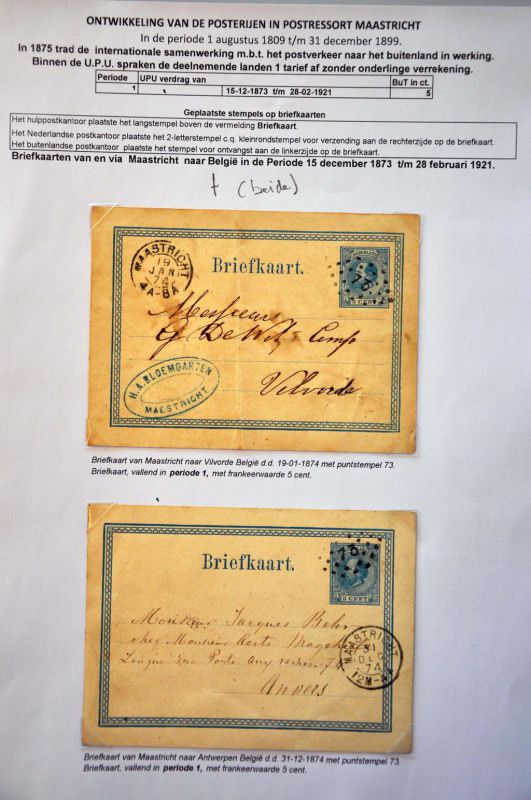 ONTWIKKELING VAN DE POSTERIJEN IN POSTRESSORT MAASTRICHT
In de periode 1 augustus 1809 t/m 31 december 1899.
In 1875 trad de internationale samenwerking m.b.t. het postverkeer naar het buitenland in werking.
Binnen de U.P.U. spraken de deelnemende landen 1 tarief af zonder onderlinge verrekening.
Periode UPU verdrag van BuT in ct.
1 15-12-1873 t/m 28-02-1921 5
Geplaatste stempels op briefkaarten
Het hulppostkantoor plaatste het langstempel boven de vermelding Briefkaart.
Het Nederlandse postkantoor plaatste het 2-letterstempel c.q. kleinrondstempel voor verzending aan de rechterzijde op de briefkaart.
Het buitenlandse postkantoor plaatste het stempel voor ontvangst aan de linkerzijde op de briefkaart.
Briefkaarten van en via Maastricht naar België in de Periode 15 december 1873 t/m 28 februari 1921.
(beide)
MAASTRICHT
19
JAN
74
4A-8A
Briefkaart.
5 CENT
Messieurs
G De Wit Comp
Vilvorde
H.A. BLOEMGARTEN
MAESTRICHT
Briefkaart van Maastricht naar Vilvorde België d.d. 19-01-1874 met puntstempel 73.
Briefkaart, vallend in periode 1, met frankeerwaarde 5 cent.
Briefkaart.
73
5 CENT
Monsieur Jacques Behr
chez Monsieur Aerts
Longue Rue Porte aux vaches
Anvers
MAASTRICHT
31
DEC
74
12M-4
Briefkaart van Maastricht naar Antwerpen België d.d. 31-12-1874 met puntstempel 73.
Briefkaart, vallend in periode 1, met frankeerwaarde 5 cent.